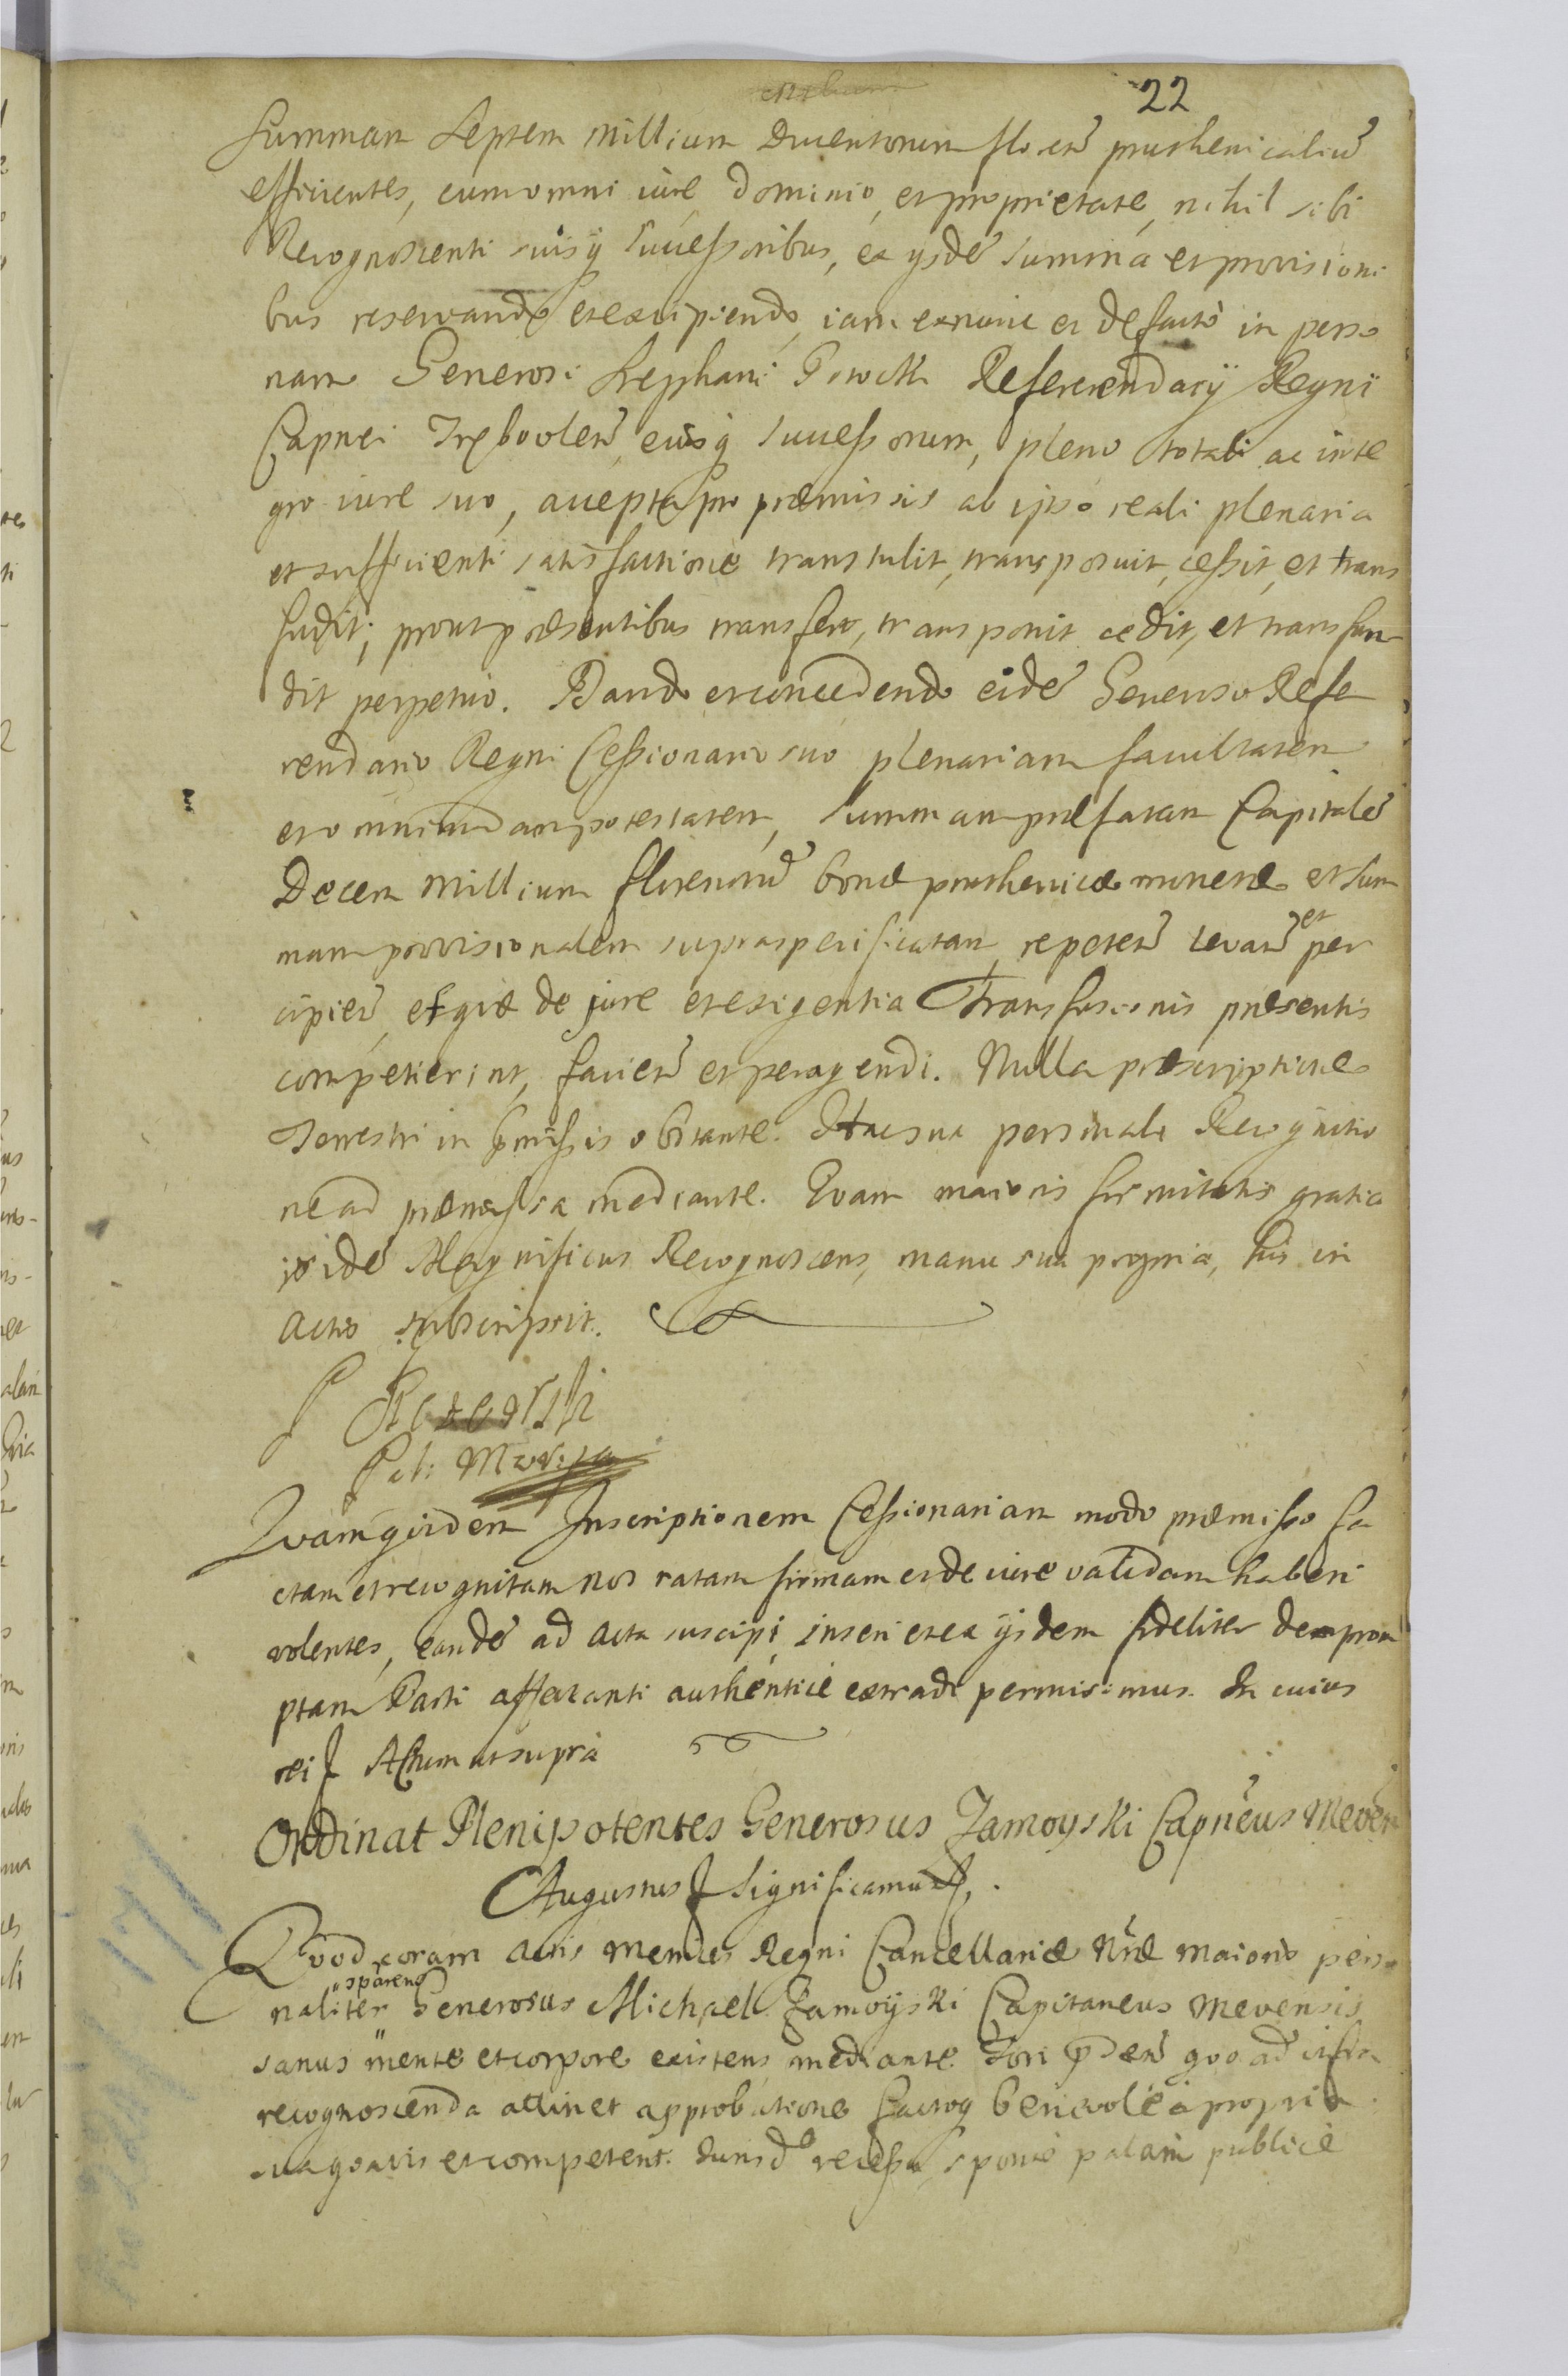 22
Summam Septem Millium Ducentorum floren prushenicaliu
efficientes, cum omni iure, dominio, et proprietate, nihil sibi
Recognoscenti suisq successoribus, ex ysde Summa et provisioni
bus reservando et excipiendo, iam exnunc et defacto in perso
nam Generosi Stephani Potocki Referendarij Regni
Capnei Trebovlen, eiusq successorum, pleno totali ac inte
gro iure suo, accepta pro præmissis ab ipso reali plenaria
et sufficienti satisfactione transtulit, transposuit, cessit, et trans
fudit; prout præsentibus transfert, transponit cedit, et transfun
dit perpetuo. Dando et concedendo eide Generoso Refe
rendario Regni Cessionario suo plenariam facultatem
et omnimodam potestatem, Summam præfatam Capitale
Decem Millium florenoru bonæ prushenicæ monetæ et sum
mam provisionalem supraspecificatam, repeten levan et per
cipien, et quæ de jure et exigentia Transfusionis præsentis
competierint, facien et peragendi. Nulla præscriptione
Terrestri in præmissis obstante. Hac sua personali Recognitio
ne ad præmissa mediante. Quam maioris firmitatis gratia
iside Magnificus Recognoscens, manu sua propria, his in
Actis subscripsit.
Quamquidem Inscriptionem Cessionariam modo præmisso fa
ctam et recognitam nos ratam firmam et de iure validam haberi
volentes, eande ad Acta suscipi, inseri et ex ijsdem fideliter deprom
ptam Parti affectanti authentice extradi permisimus. In cuius
rei Actum ut supra
Ordinat Plenipotentes Generosus Zamoyski Capneus Meven
Augustus Significamus.
Quod coram Actis Metrices Regni Cancellariæ Nræ Maioris perso
naliter comparens Generosus Michael Zamoyski Capitaneus Mevensis
sanus mente et corpore existens mediante Fori pden quo ad infra
recognoscenda attinet approbatione factoq benevole a propria
sua quavis et competent. Iurisd recessu, sponte palam publice